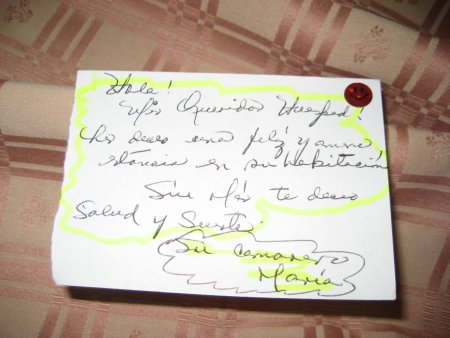 Hola!
Mis Queridos Huesped!
Les deseo una feliz y amena
estancia en su habitación
Sin Más te deseo
Salud y Suerte.
Su camarera
María